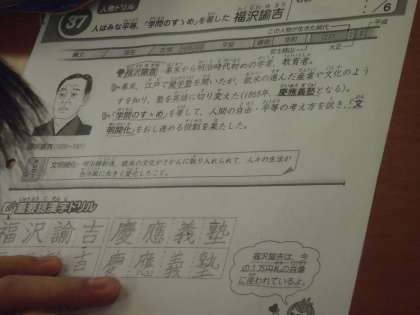 人物ドリル
37 人はみな平等、「学問のすゝめ」を著した 福沢諭吉
/6
この人物が生きた時代
平成
大正
幕末から明治時代初めの学者、教育者。
幕末、江戸で蘭学塾を開いたが、欧米の進んだ産業や文化のよう
すを知り、塾を英語に切り変えた(1868年、慶應義塾となる)。
「学問のすゝめ」を著して、人間の自由・平等の考え方を説き、「文
明開化」をおし進める役割を果たした。
文明開化 明治維新後、欧米の文化がさかんに取り入れられて、人々の生活が
重要語漢字ドリル
福沢諭吉慶應義塾
慶應義塾
福沢諭吉は、今
の1万円札の肖像
に使われているよ。